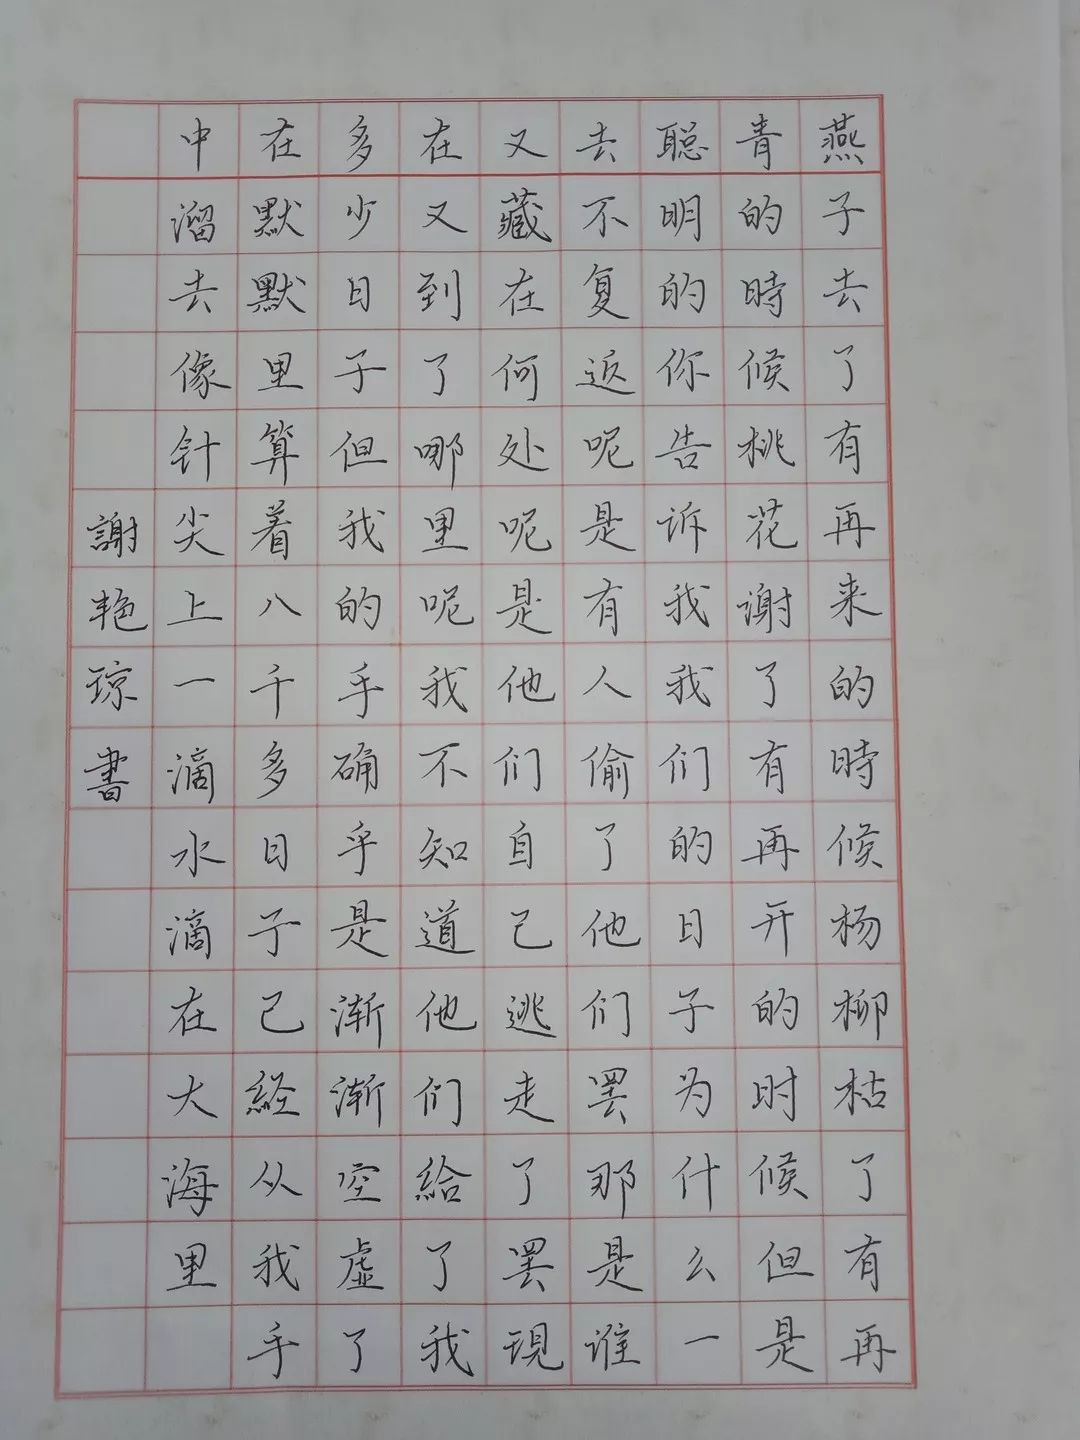 燕子去了有再来的時候杨柳枯了有再
青的時候桃花謝了有再开的时候但是
聪明的你告诉我我们的日子为什么一
去不复返呢是有人偷了他们罢那是谁
又藏在何处呢是他们自己逃走了罢現
在又到了哪里呢我不知道他们給了我
多少日子但我的手确乎是渐渐空虚了
在默默里算着八千多日子已經从我手
中溜去像针尖上一滴水滴在大海里
謝艳琼書